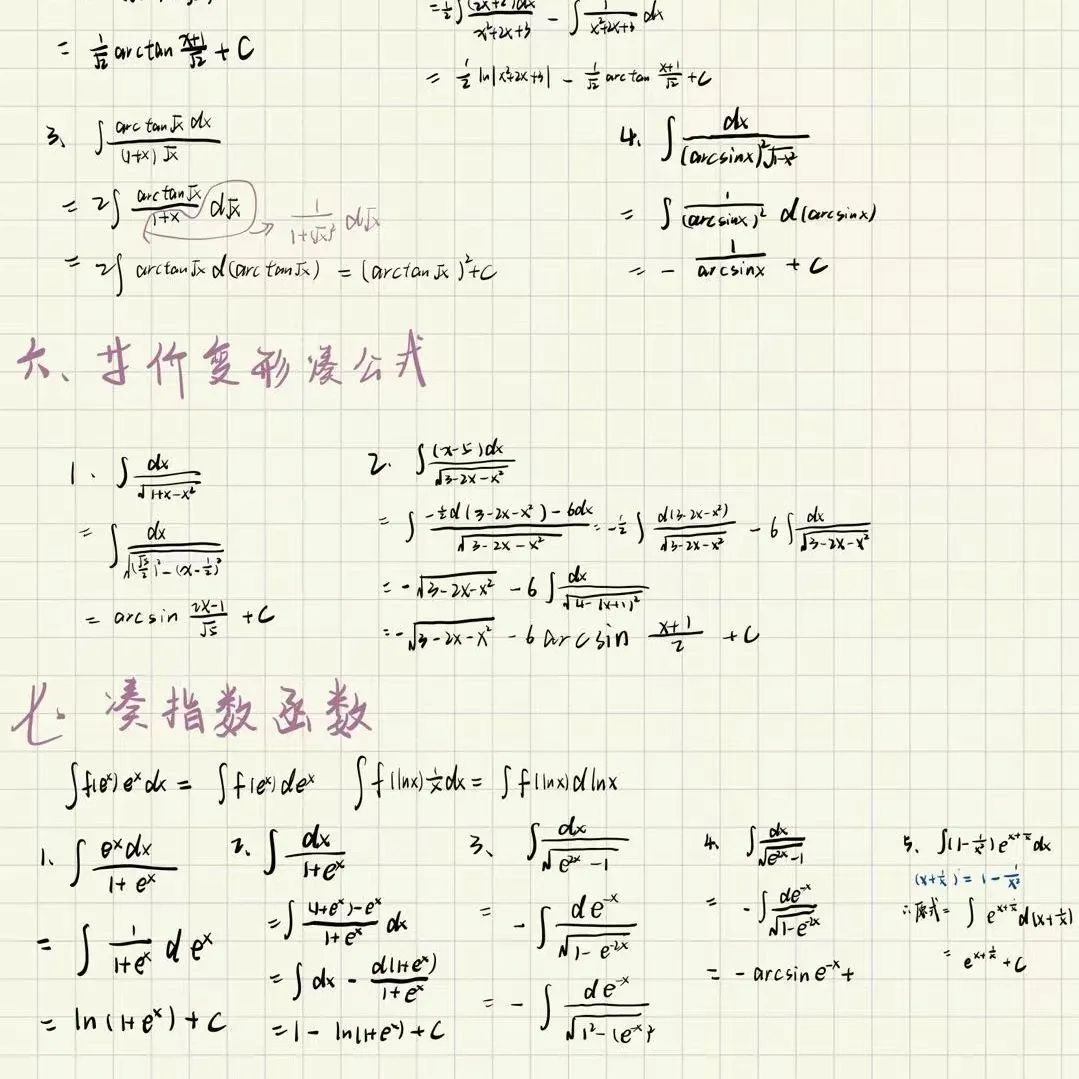 = 1/√2 arctan (x+1)/√2 + C
= ½∫ (2x+2)dx/(x²+2x+3) - ∫ 1/(x²+2x+3) dx
= ½ ln|x²+2x+3| - 1/√2 arctan (x+1)/√2 + C
3、 ∫ arctan√x dx/((1+x)√x)
= 2∫ arctan√x/(1+x) d√x → 1/(1+(√x)²) d√x
= 2∫ arctan√x d(arctan√x) = (arctan√x)² + C
4、 ∫ dx/((arcsinx)²√(1-x²))
= ∫ 1/(arcsinx)² d(arcsinx)
= - 1/arcsinx + C
六、等价变形凑公式
1. ∫ dx/√(1+x-x²)
= ∫ dx/√((√5/2)²-(x-½)²)
= arcsin (2x-1)/√5 + C
2. ∫ (x-5)dx/√(3-2x-x²)
= ∫ (-½d(3-2x-x²)-6dx)/√(3-2x-x²) = -½∫ d(3-2x-x²)/√(3-2x-x²) - 6∫ dx/√(3-2x-x²)
= -√(3-2x-x²) - 6∫ dx/√(4-(x+1)²)
= -√(3-2x-x²) - 6 arcsin (x+1)/2 + C
七. 凑指数函数
∫f(eˣ)eˣdx = ∫f(eˣ)deˣ ∫f(lnx)1/x dx = ∫f(lnx)dlnx
1、 ∫ eˣdx/(1+eˣ)
= ∫ 1/(1+eˣ) deˣ
= ln(1+eˣ)+C
2、 ∫ dx/(1+eˣ)
= ∫ ((1+eˣ)-eˣ)/(1+eˣ) dx
= ∫dx - d(1+eˣ)/(1+eˣ)
= 1 - ln(1+eˣ)+C
3、 ∫ dx/√(e²ˣ-1)
= -∫ de⁻ˣ/√(1-e⁻²ˣ)
= -∫ de⁻ˣ/√(1²-(e⁻ˣ)²
4、 ∫ dx/√(e²ˣ-1)
= -∫ de⁻ˣ/√(1-e⁻²ˣ)
= -arcsin e⁻ˣ+
5、 ∫(1-1/x²)e^(x+1/x)dx
(x+1/x)' = 1-1/x²
∴原式= ∫ e^(x+1/x)d(x+1/x)
= e^(x+1/x)+C